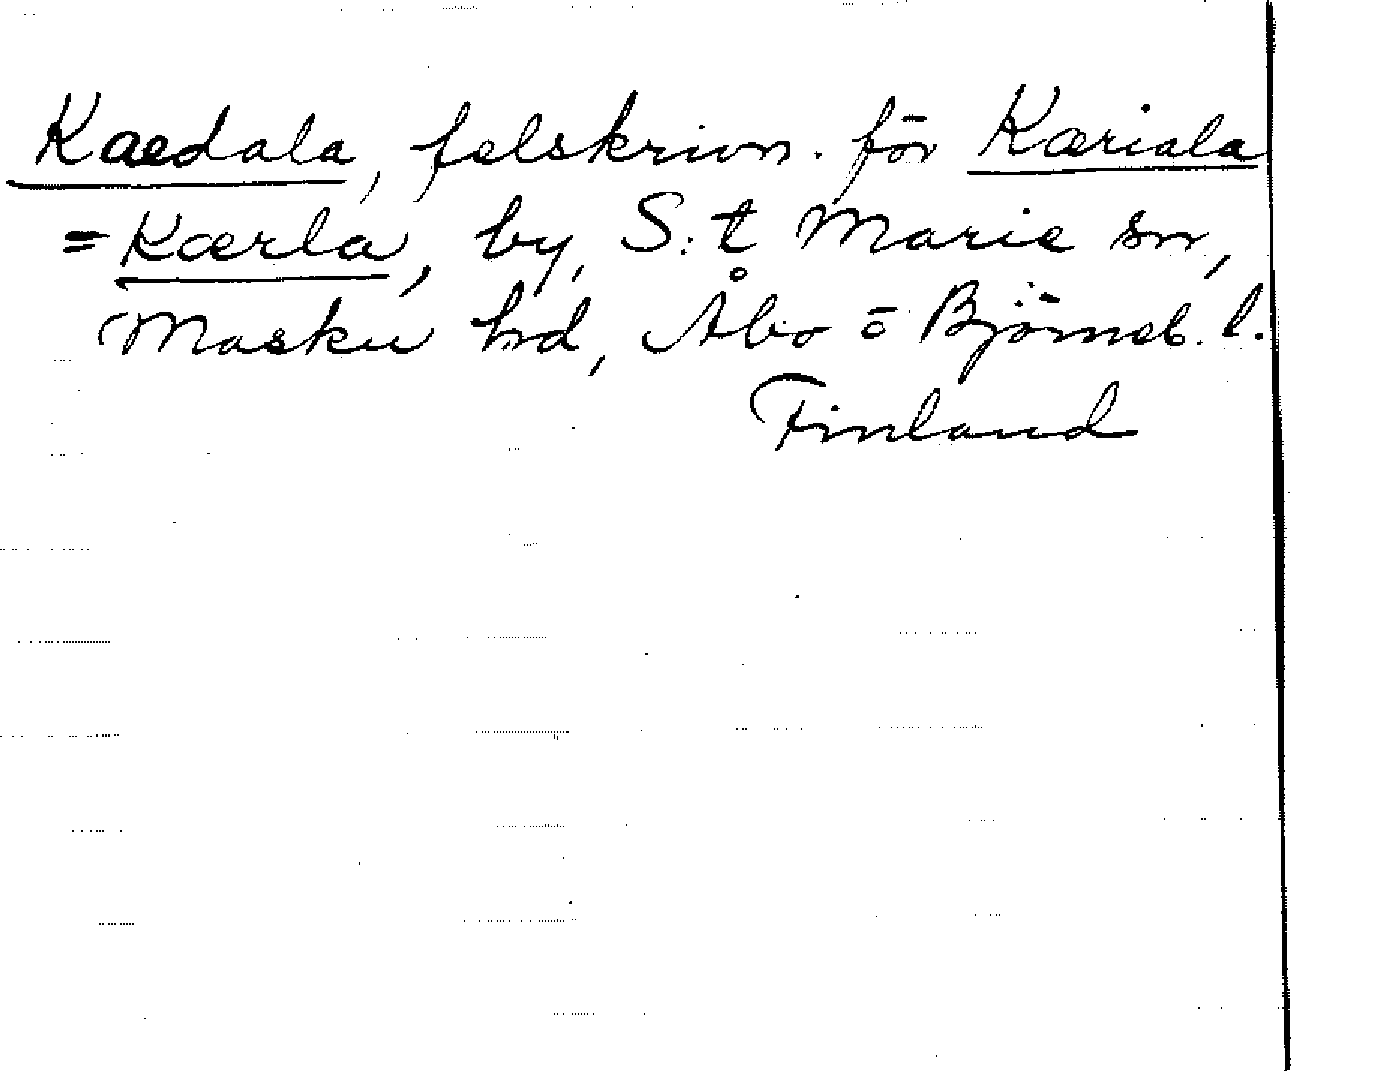 Kaedala, felskrivn. för Kæriala
= Kærla, by, S:t Marie sn,
Masku hd, Åbo o Björneb. l.
Finland